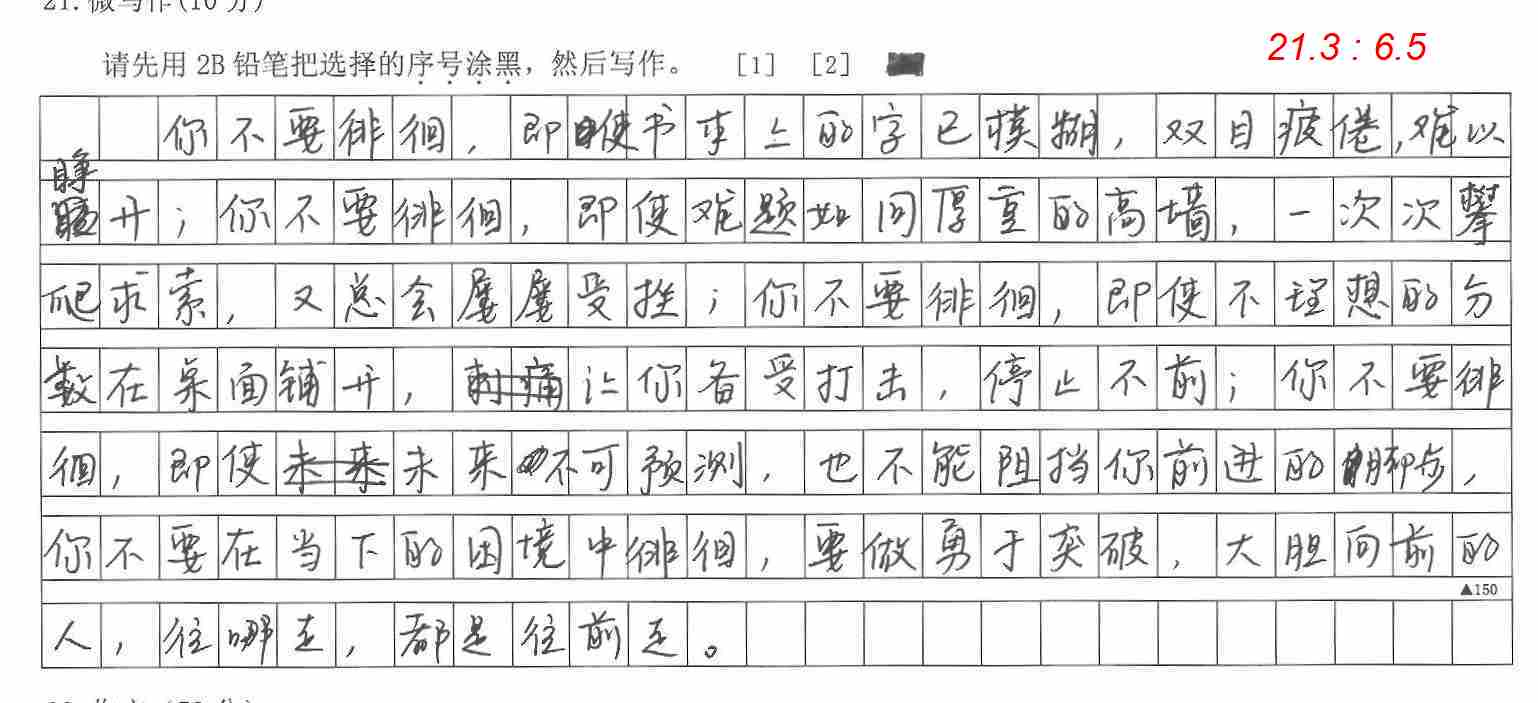 21.微写作(10分)
请先用 2B 铅笔把选择的序号涂黑，然后写作。 [1] [2]
21.3 : 6.5
你不要徘徊，即使书本上的字已模糊，双目疲倦，难以
睁开；你不要徘徊，即使难题如同厚重的高墙，一次次攀
爬求索，又总会屡屡受挫；你不要徘徊，即使不理想的分
数在桌面铺开，刺痛让你备受打击，停止不前；你不要徘
徊，即使未来未来不可预测，也不能阻挡你前进的脚步，
你不要在当下的困境中徘徊，要做勇于突破，大胆向前的
▲150
人，往哪走，都是往前走。